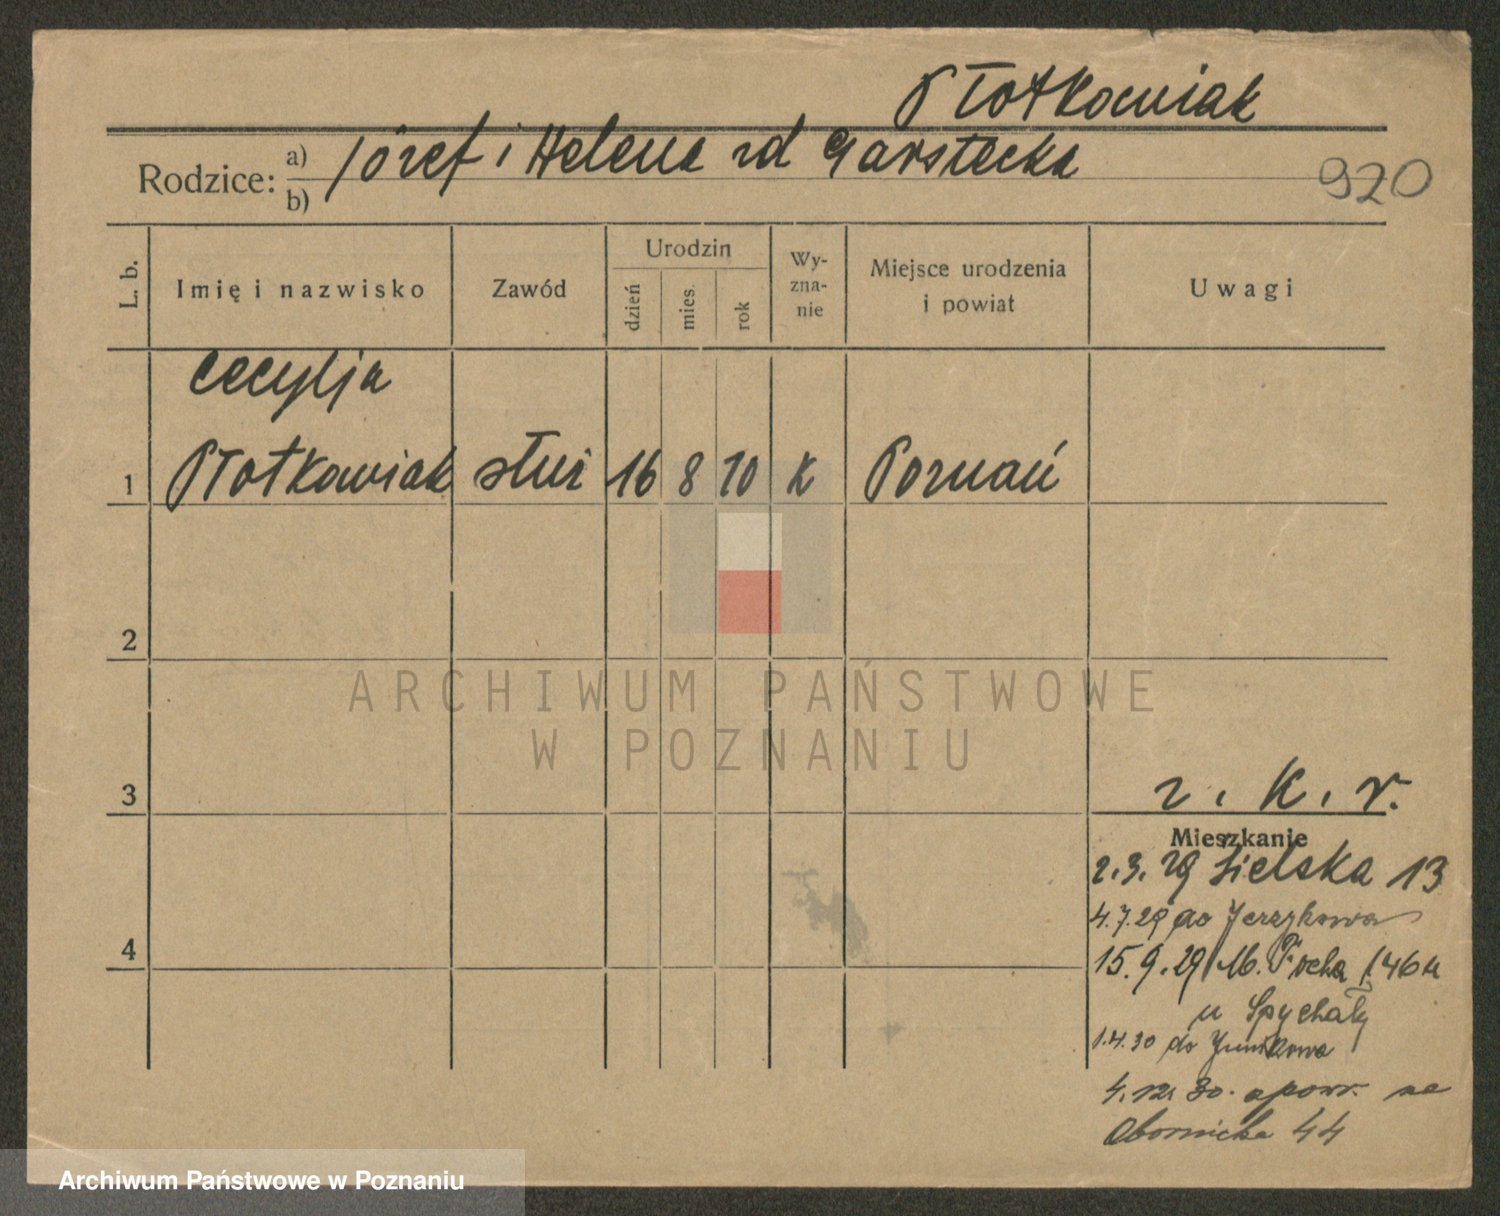 Płotkowiak
Rodzice: a) Józef i Helena zd Garstecka
b)
920
L. b.
Imię i nazwisko
Zawód
Urodzin
dzień
mies.
rok
Wy-
zna-
nie
Miejsce urodzenia
i powiat
Uwagi
Cecylja
1 Płotkowiak służ 16 8 10 K Poznań
2
ARCHIWUM PAŃSTWOWE
W POZNANIU
3
z. k. r.
Mieszkanie
2.3.29 Sielska 13
4.7.29 do Jerzykowa
4
15.9.29 M. Focha 146
u Spychały
1.4.30 do Junikowa
4.12.30.
Obornicka 44
Archiwum Państwowe w Poznaniu